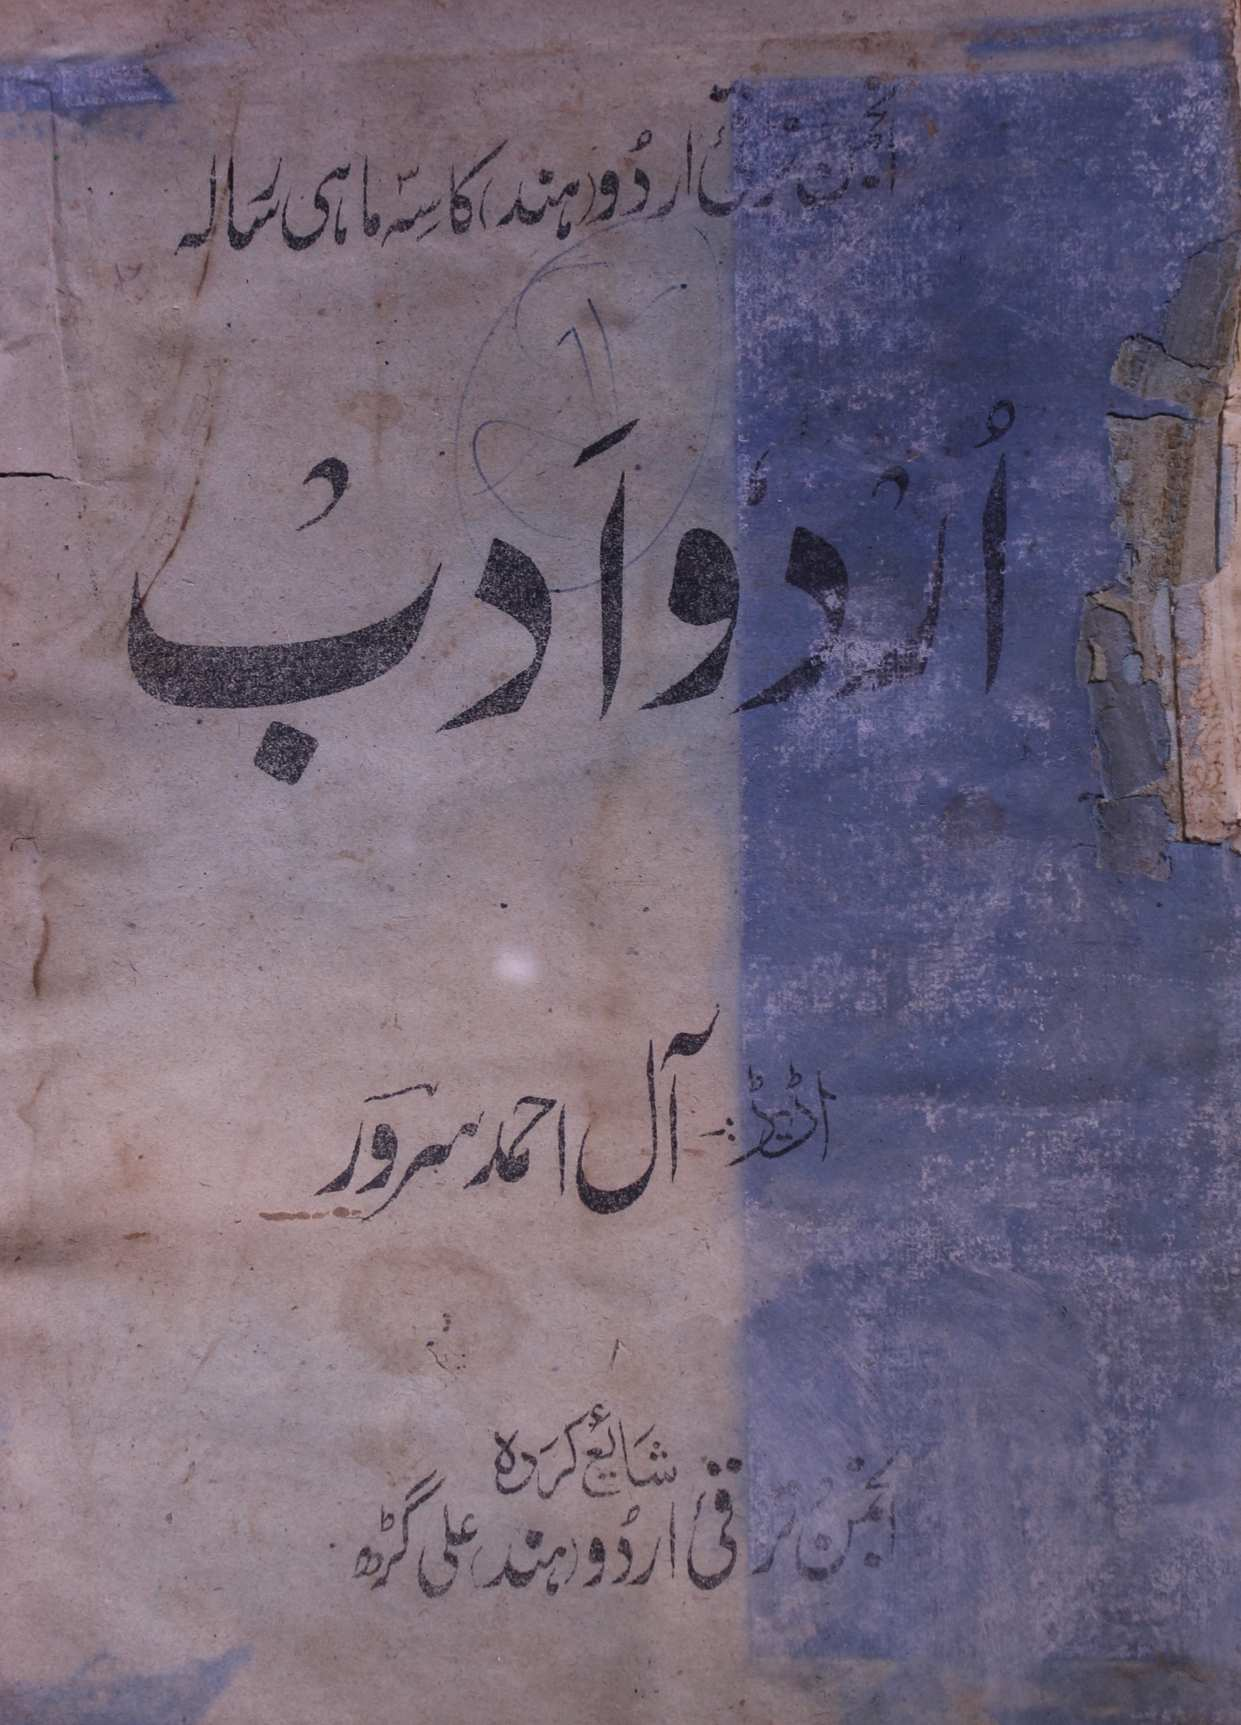 انجمن ترقیٔ اردو (ہند) کا سہ ماہی رسالہ
اُردُو اَدبْ
اڈیٹر :- آل احمد سرور
شائع کردہ
انجمن ترقیٔ اردو (ہند) علی گڑھ